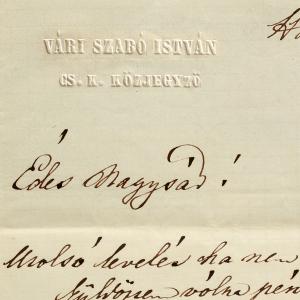 VÁRI SZABÓ ISTVÁN
CS. K. KÖZJEGYZŐ
Édes Nagysád!
Utolsó levelés ha nem
küldössen vólna pén